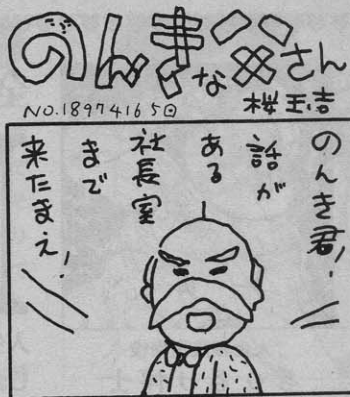 のんきな父さん
NO.18974165回
桜玉吉
のんき君!
話が
ある
社長室
まで
来たまえ!